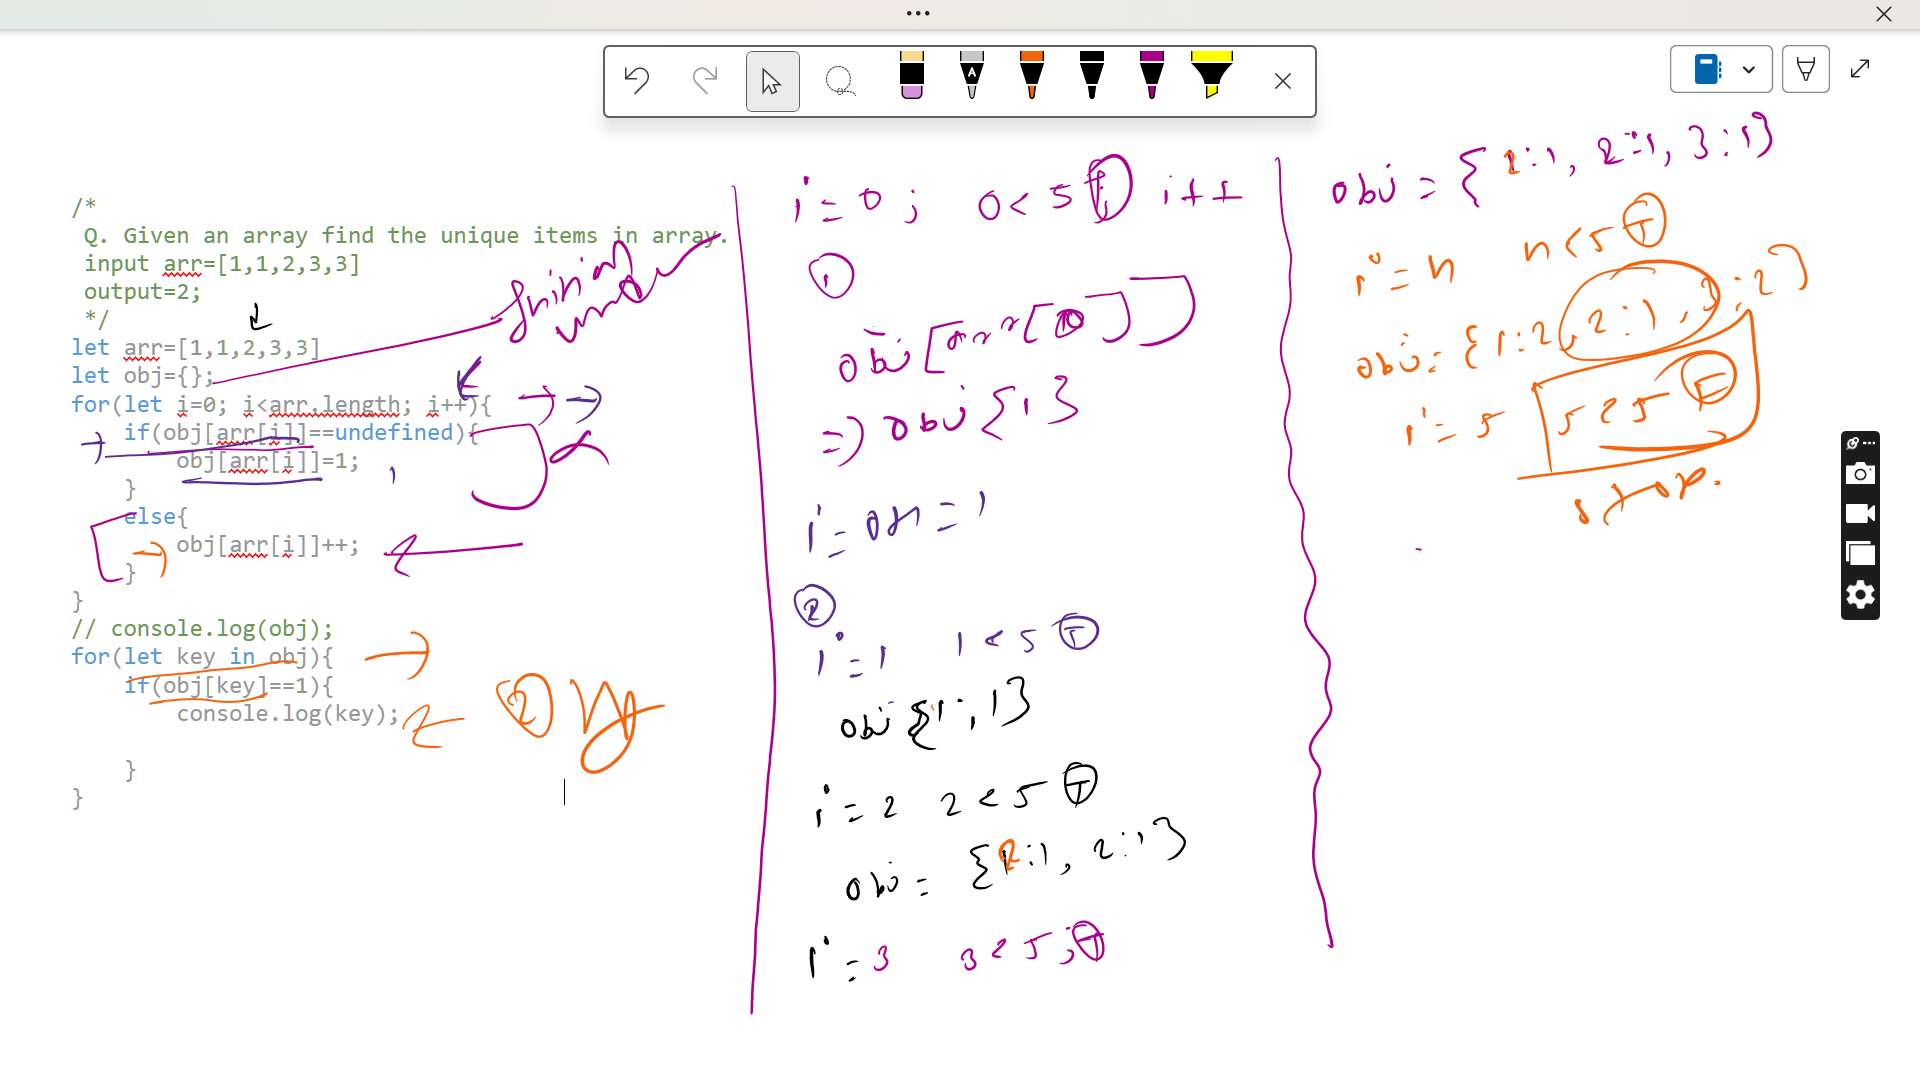 /*
Q. Given an array find the unique items in array.
input arr=[1,1,2,3,3]
output=2;
*/
let arr=[1,1,2,3,3]
let obj={};
for(let i=0; i<arr.length; i++){
if(obj[arr[i]]==undefined){
obj[arr[i]]=1;
}
else{
obj[arr[i]]++;
}
}
// console.log(obj);
for(let key in obj){
if(obj[key]==1){
console.log(key);
}
}
2
i=0; 0<5 i++
1
obj[arr[0]]
=> obj{1}
2
i=1 1<5 T
i=2 2<5 T
obj= {2:1, 2:1}
i=3 3<5; T
obj = {2:1, 2:1, 3:1}
<5 T
obj= {1:2, 2:1, 3:2}
i=5 5<5 F
stop.